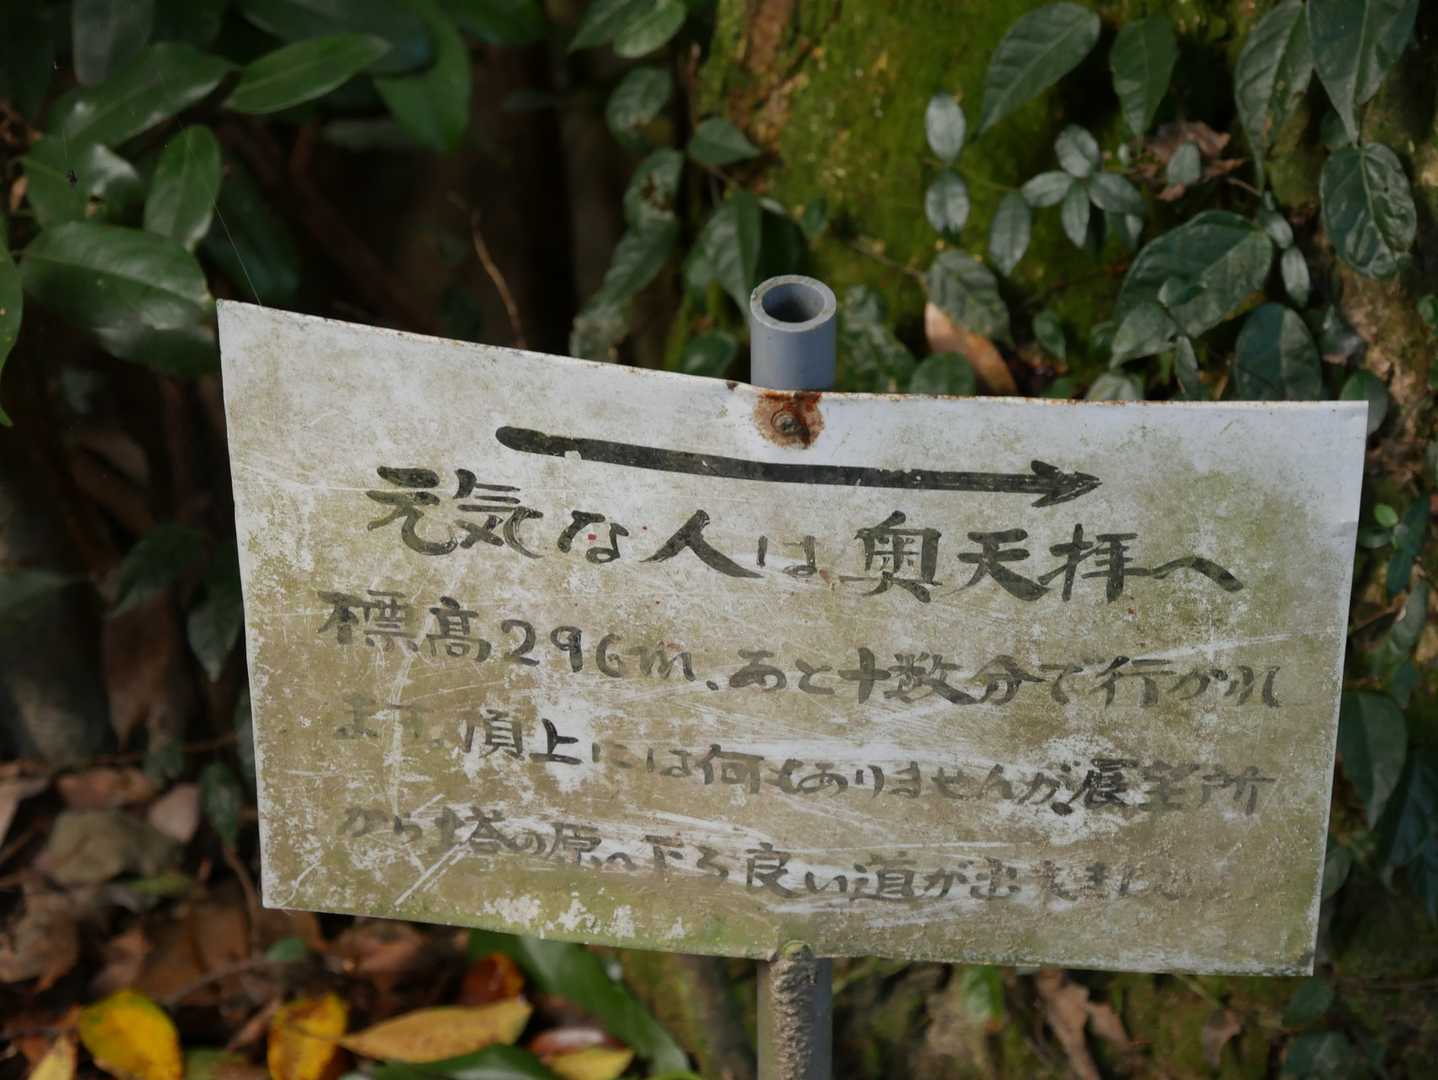 元気な人は奥天拝へ
標高296m、あと十数分で行かれ
ます。頂上には何もありませんが、展望所
から塔の原へ下る良い道が出来ました